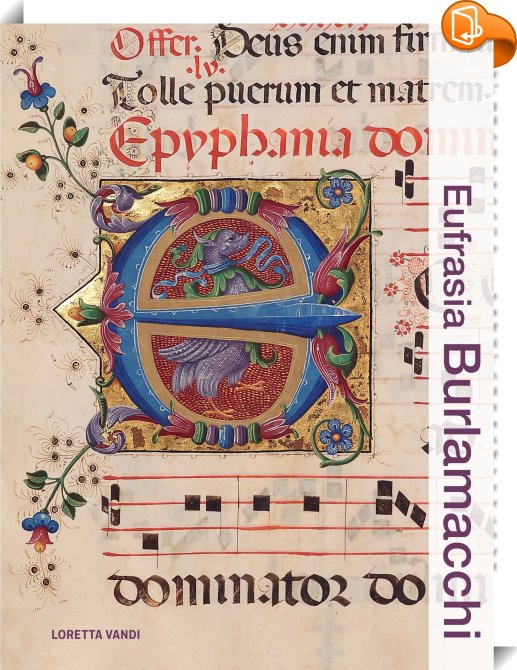 Offer. Deus enim firm
.lv.
Tolle puerum et matrem.
Epyphania domin
Eufrasia Burlamacchi
dominator do
LORETTA VANDI